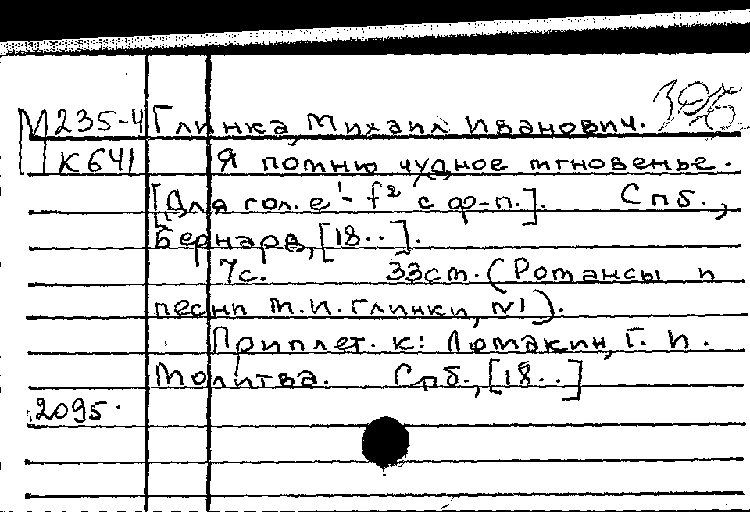 М235-4 Глинка, Михаил Иванович.
К641 Я помню чудное мгновенье.
[Для гол. e¹ - f² с ф-п.]. Спб.,
Бернард, [18..].
7с. 33см. (Романсы и
песни М.И. Глинки, №1).
Приплет. к: Ломакин, Г. И.
Молитва. Спб., [18..]
2095.